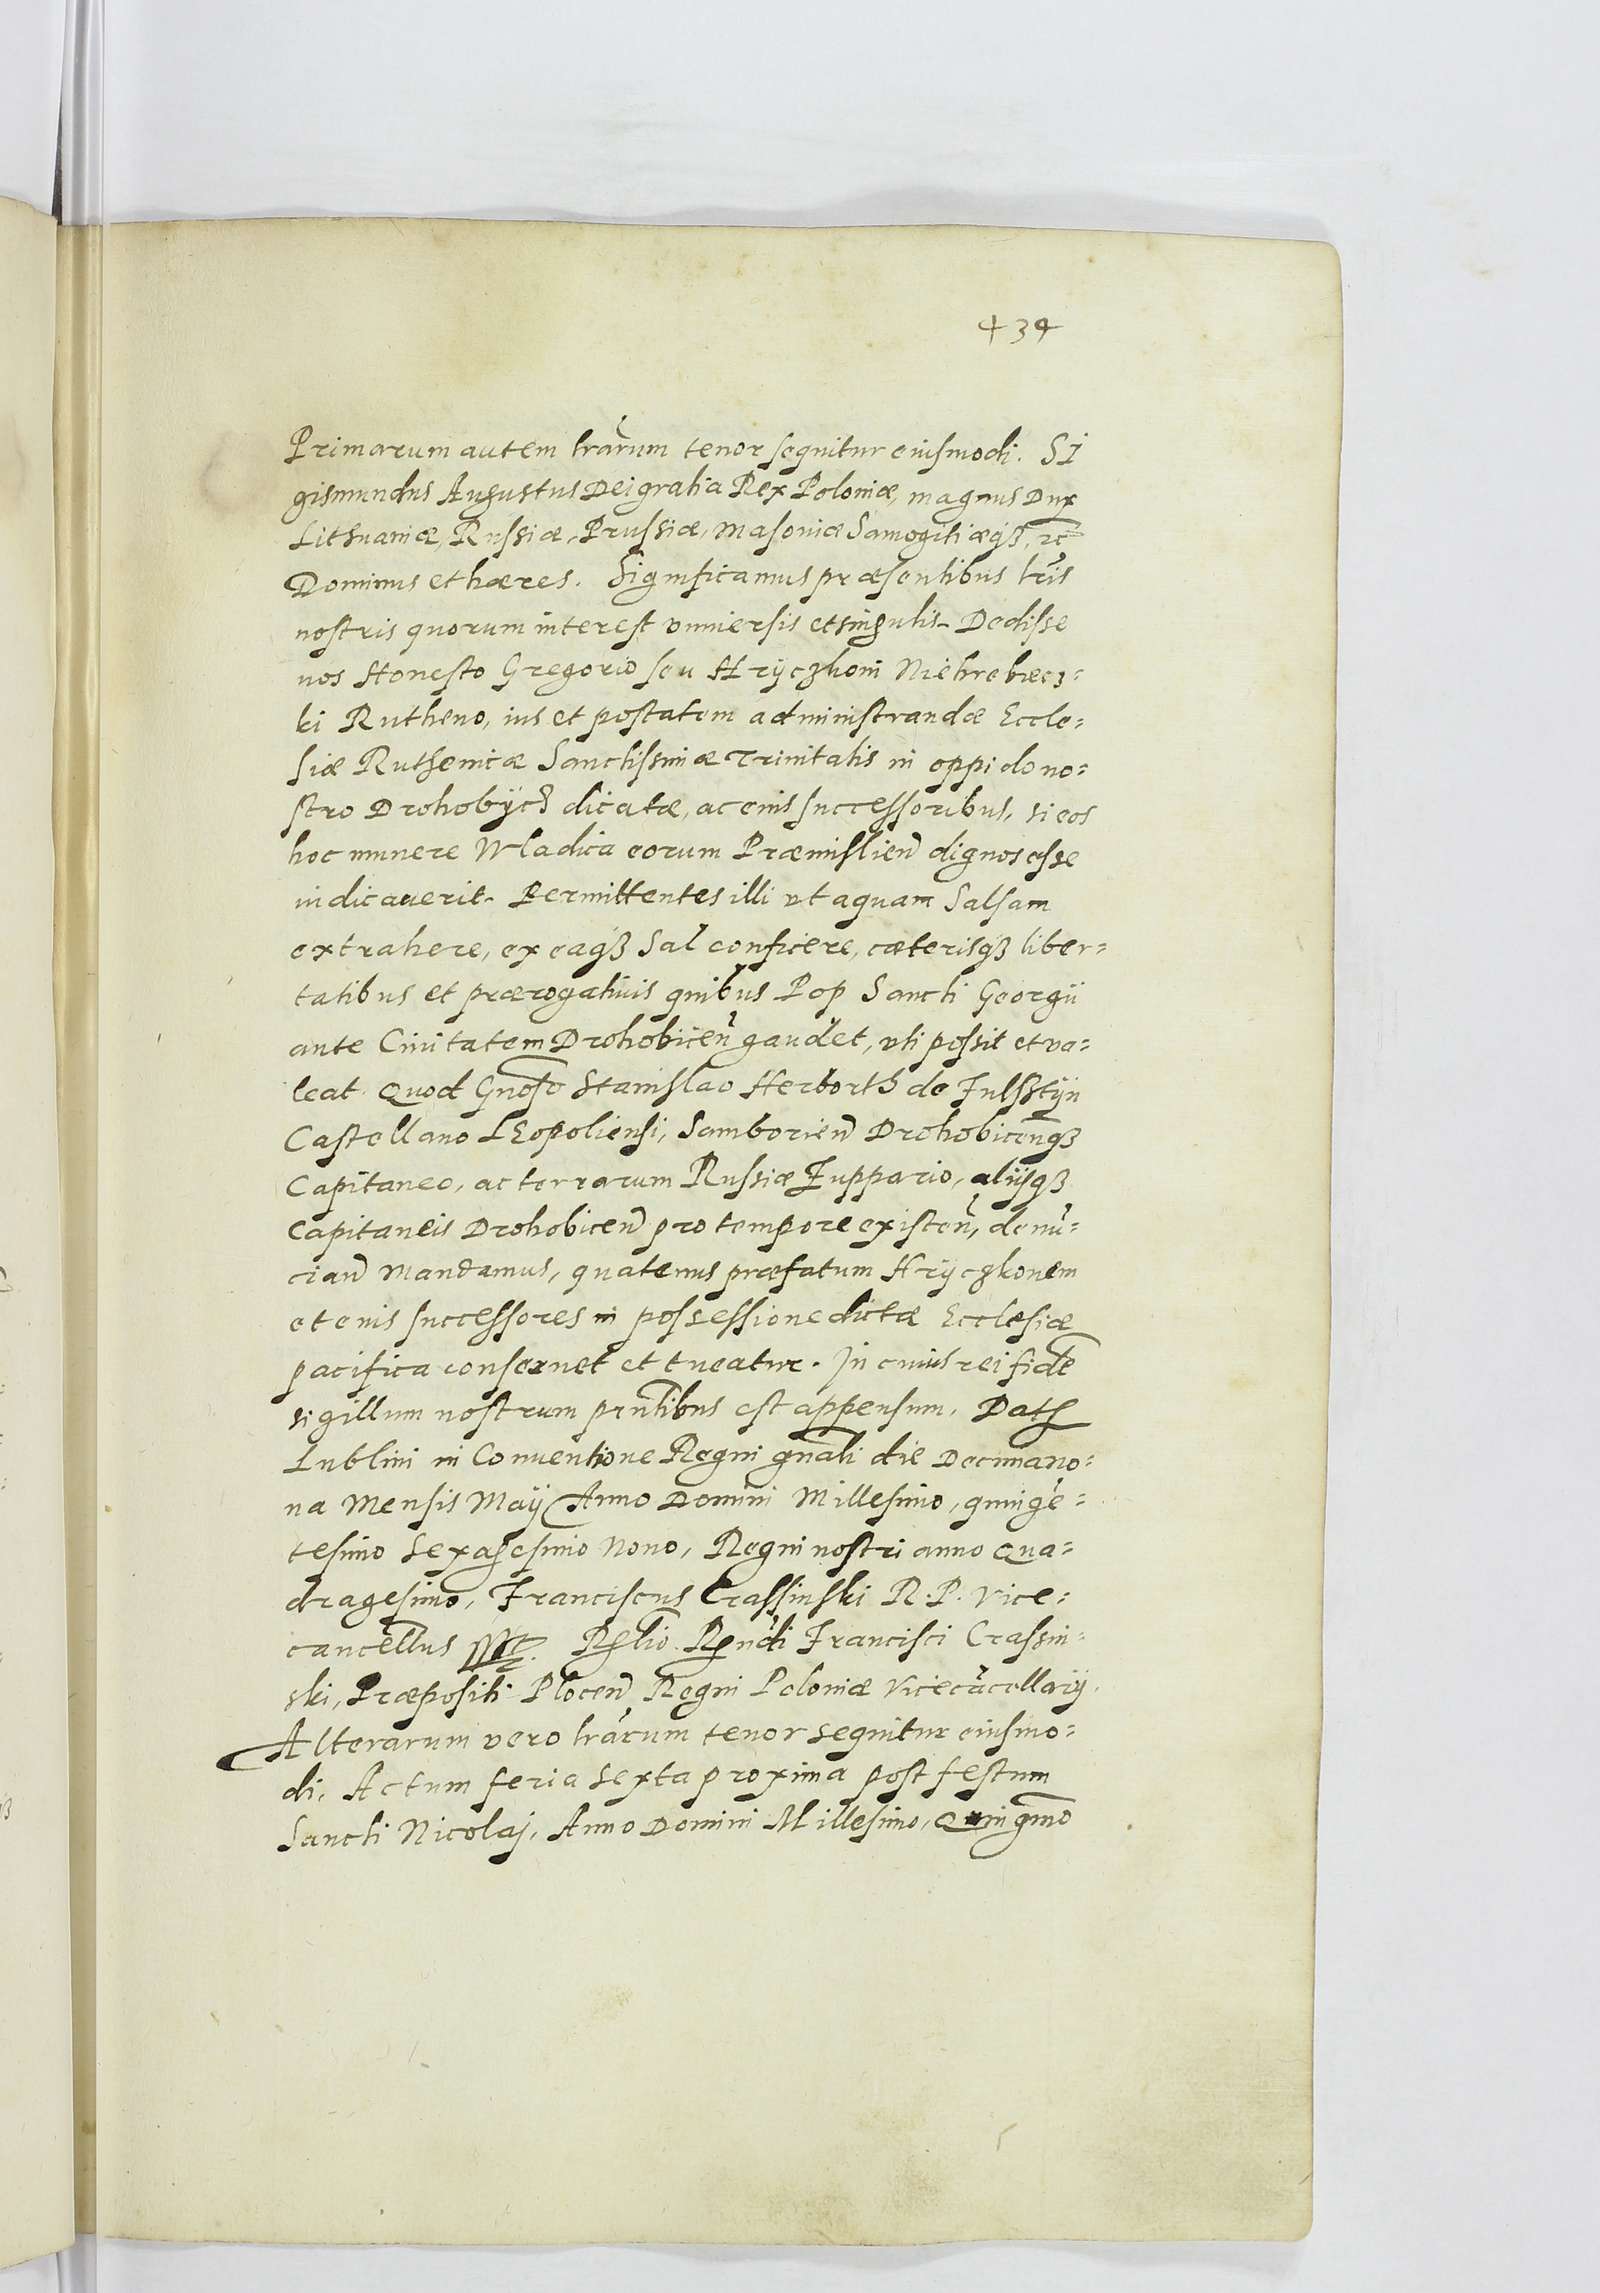 434
Primarum autem lrarum tenor sequitur eiusmodi. SI
gismundus Augustus Dei gratia Rex Poloniæ, magnus Dux
Lithuaniæ, Russiæ, Prussiæ, Masoviæ Samogitiæq3, rc
Dominus et hæres. Significamus præsentibus lris
nostris quorum interest vniuersis et singulis. Dedisse
nos Honesto Gregorio seu Hryczkoni Niehrebiecz=
ki Rutheno, ius et p̄ostatem administrandæ Eccle=
siæ Ruthenicæ Sanctissimæ Trinitatis in oppido no=
stro Drohobÿcz dicatæ, ac eius successoribus, si eos
hoc munere Wladica eorum Præmislien̄ dignos esse
iudicauerit. Permittentes illi vt aquam Salsam
extrahere, ex eaq3 Sal conficere, cæterisq3 liber=
tatibus et prærogatiuis quibus Pop Sancti Georgii
ante Ciuitatem Drohobicen̄ gaudet, vti possit et va=
leat. Quod Gnoso Stanislao Herborth de Fulsstÿn
Castellano LEopoliensi, Samborien̄ Drohobicen̄q3
Capitaneo, ac terrarum Russiæ Zuppario, aliisq3
Capitaneis Drohobicen̄ pro tempore existen̄, denū=
cian̄ mandamus, quatenus præfatum Hryczkonem
et eius successores in possessione dictæ Ecclesiæ
pacifica conseruet et tueatur. In cuius rei fidē
sigillum nostrum pn̄tibus est appensum. Dat
Lublini in Conuentione Regni gn̄ali die Decimano=
na Mensis Maÿ Anno Domini Millesimo, quingē=
tesimo Sexagesimo Nono, Regni nostri anno Qua=
dragesimo, Franciscus Crassinski R. P. Vice=
cancellus sst. Relio. Rn̄di Francisci Crassin=
ski, Præpositi Plocen̄ Regni Poloniæ Vicecācellarÿ.
Alterarum vero lrarum tenor sequitur eiusmo=
di, Actum feria sexta proxima post festum
Sancti Nicolaj, Anno Domini Millesimo, Quingmo